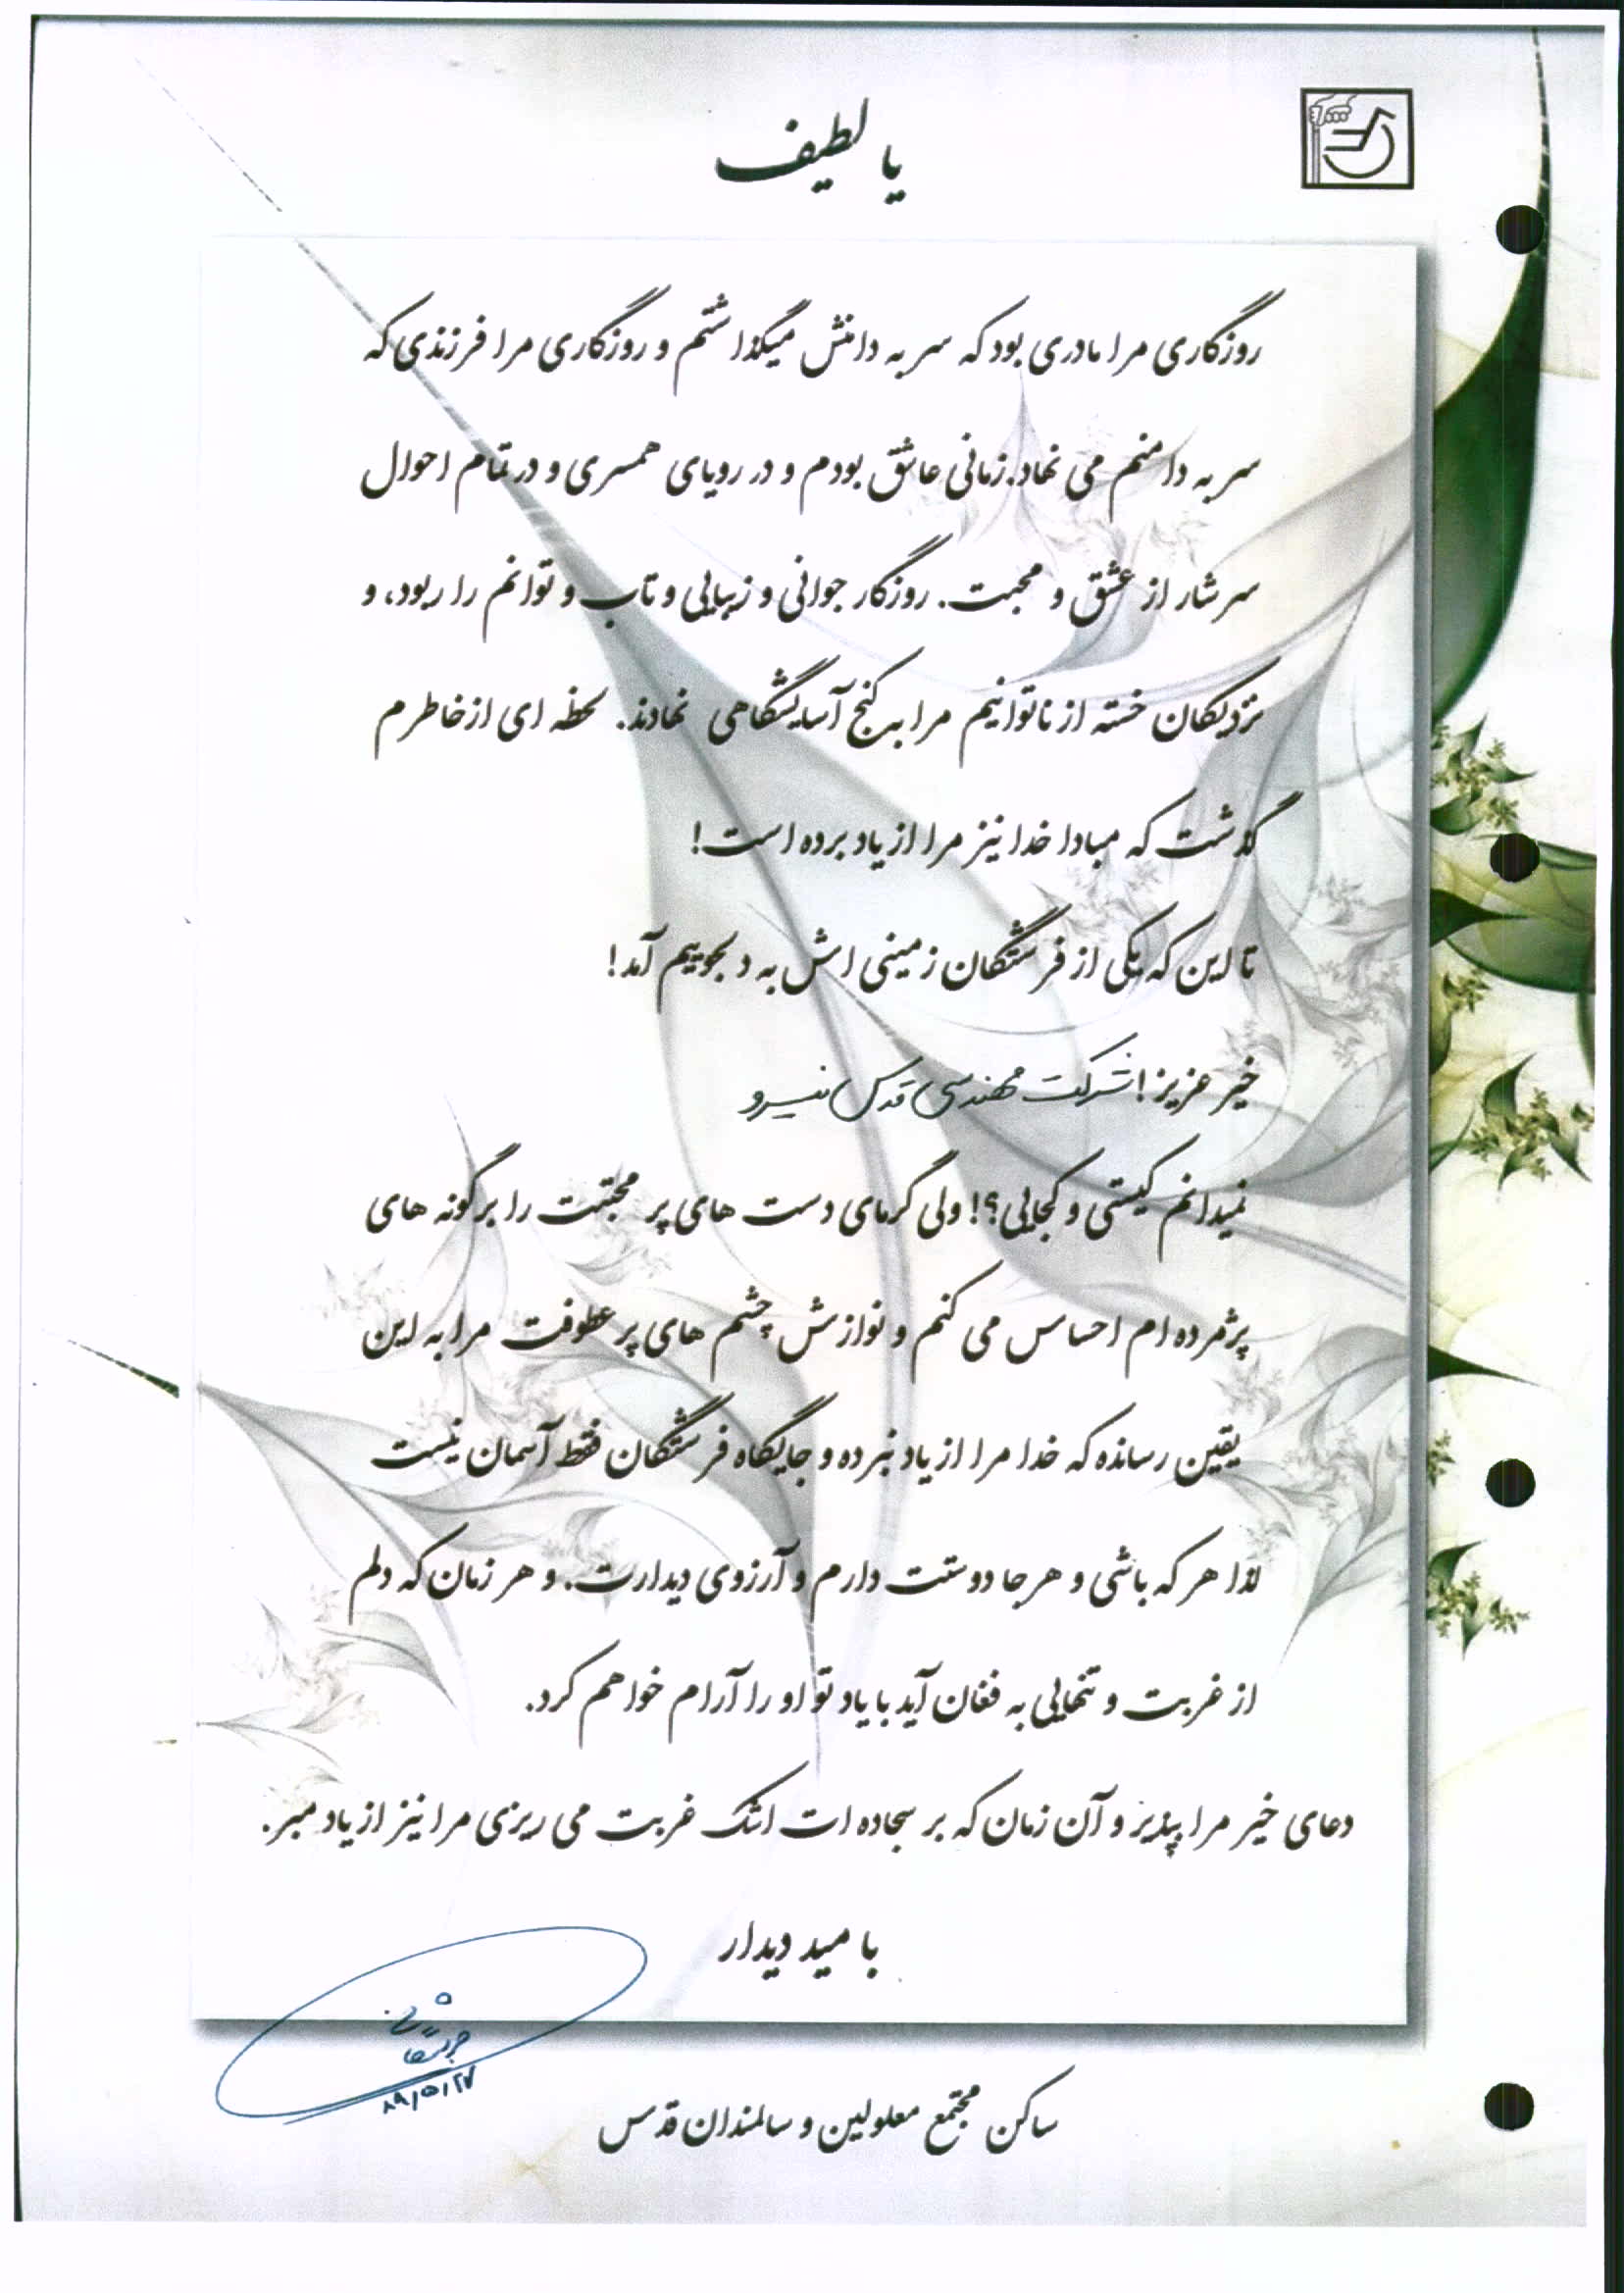 یا لطیف
روزگاری مرا مادری بود که سر به دامنش میگذاشتم و روزگاری مرا فرزندی که
سر به دامنم می نهاد. زمانی عاشق بودم و در رویای همسری و در تمام احوال
سرشار از عشق و محبت. روزگار جوانی و زیبایی و تاب و توانم را ربود، و
نزدیکان خسته از ناتوانیم مرا به کنج آسایشگاهی نهادند. لحظه ای از خاطرم
گذشت که مبادا خدا نیز مرا از یاد برده است!
تا این که یکی از فرشتگان زمینی اش به دلجوییم آمد!
خیر عزیز! شرکت مهندسی قدس نیرو
نمیدانم کیستی و کجایی؟! ولی گرمای دست های پر محبتت را بر گونه های
پژمرده ام احساس می کنم و نوازش چشم های پر عطوفت مرا به این
یقین رسانده که خدا مرا از یاد نبرده و جایگاه فرشتگان فقط آسمان نیست
لذا هر که باشی و هر جا دوستت دارم و آرزوی دیدارت. و هر زمان که دلم
از غربت و تنهایی به فغان آید با یاد تو او را آرام خواهم کرد.
دعای خیر مرا بپذیر و آن زمان که بر سجاده ات اشک غربت می ریزی مرا نیز از یاد مبر.
با مید دیدار
۸۹/۵/۲۷
ساکن مجتمع معلولین و سالمندان قدس